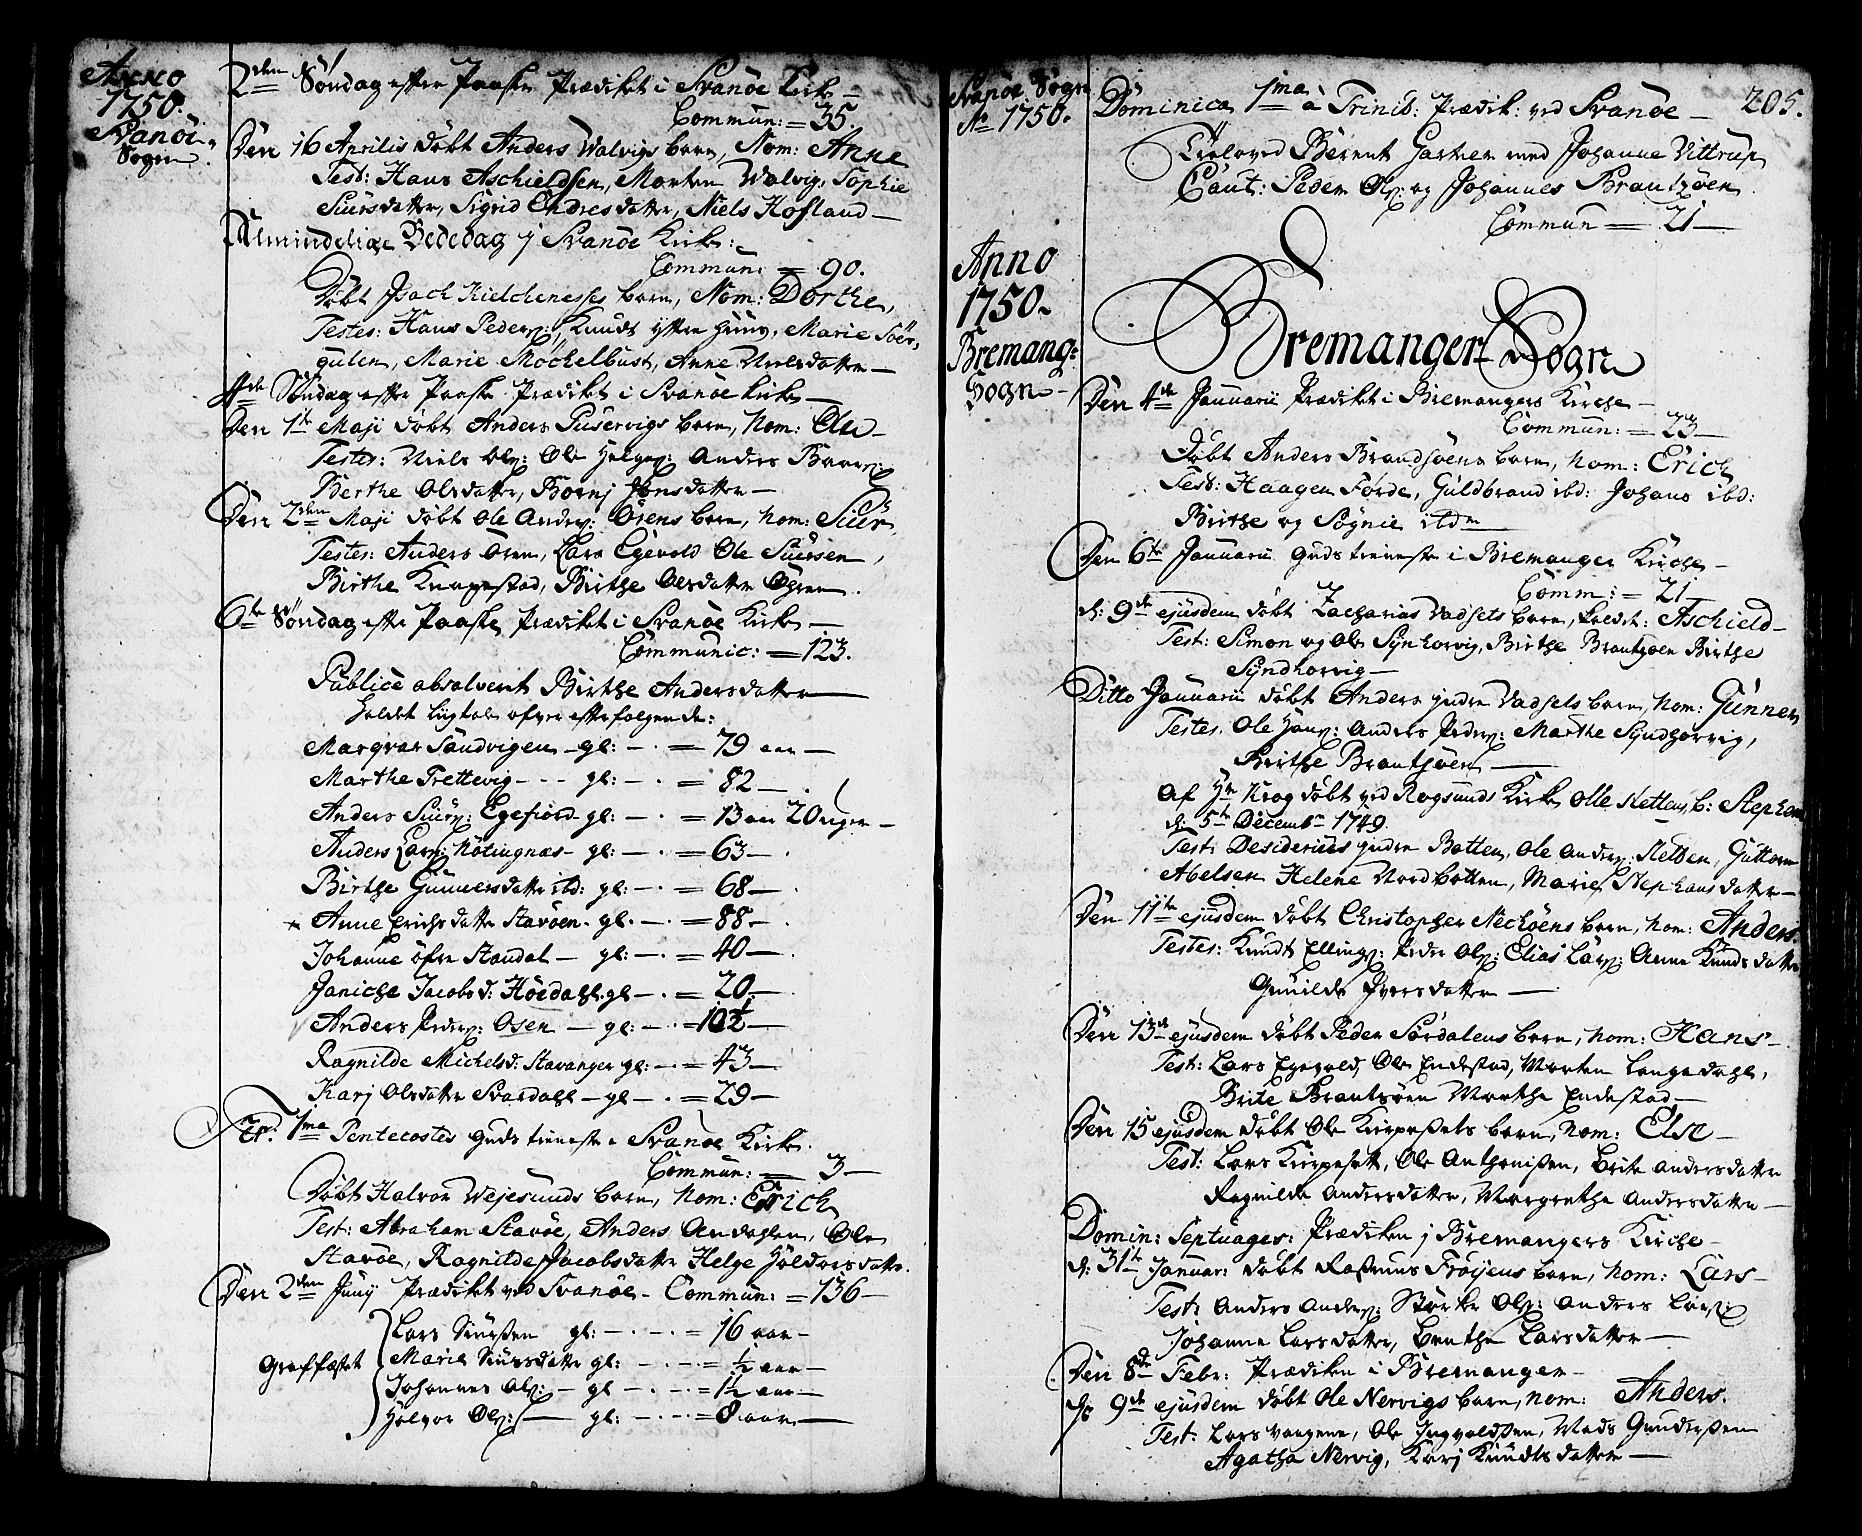 Anno
1750.
Svanöe
Sogn.
2den Søndag efter Paaske Prædiket i Svanöe Kirke —
Commun: = 35.
Den 16 Aprilis döbt Anders Walvigs barn, Nom: Anne
Test: Hans Aschieldsen, Morten Walvig, Sophie
Siursdatter, Sigrid Endresdatter, Niels Hofland —
Almindelige Bededag j Svanöe Kirke:
Commun: = 90.
Döbt Isach Kielchenesses barn, Nom: Dorthe,
Testes: Hans Peders: Knudt yttre Huus, Marie Söer-
gulen, Marie Möckelbust, Anne Nielsdatter —
4de Söndag efter Paaske Prædiket i Svanöe Kirke —
Den 1te Maji döbt Anders Puservigs barn, Nom: Ole —
Testes: Niels Ols: Ole Helges: Anders
Berthe Olsdatter, Bornj Jonsdatter —
Den 2den Maji döbt Ole Anders: Ösens barn, Nom: Siur,
Testes: Anders Ösen, Lars Egevold Ole Siursen,
Birthe Knapstad, Birthe Olsdatter Ösen.
6te Söndag efter Paaske Prædiket i Svanöe Kirke —
Communic: = 123.
Publice absolverit Birthe Andersdatter
Holdet liigtale ofver efterfolgende:
Margrar Sandvigen — gl: — . = 79 aar —
Marthe Trettevig - - - gl: — . = 82 — .
Anders Siurs: Egefiord gl: — . = 13 aar 20 uger —
Anders Lars: Nötingnæs — gl: — . = 63 — .
Birthe Gunnersdatter itd: gl: — . = 68 — .
Anne Erichsdatter Stavöen. gl. — . = 88 —
Johanne öfre Standal — gl: — . = 40 —
Janiche Jacobsd: Höedahl. gl — . = 20 —
Anders Peders: Osen — gl: — . = 10½ —
Ragnilde Michelsd: Stavanger gl: — . = 43 —
Karj Olsdatter Svardahl — gl — . = 29 —
Fer. 1ma Pentecostes Gudstieneste i Svanöe Kirke.
Commun: = 3 —
Döbt Halvor Wejesunds barn, Nom: Erich
Test: Abraham Stavöe, Anders Andahlen, Ole
Stavöe, Ragnilde Jacobsdatter Helge Holdorsdatter.
Den 2den Junj Prædiket ved Svanöe — Commun: = 136 —
Graffæstet
Lars Siursen gl: — . — . = 16 aar —
Marie Siursdatter gl: — . — . = ½ aar —
Johannes Ols: — gl — . — . = 1½ aar —
Halvor Ols: — gl: — . — . = 8 aar —
Svanöe Sogn
Ao 1750.
205.
Dominica 1ma à Trinit: Prædik: ved Svanöe —
Troloved Berent Gartner med Johanne Vittrup
Caut: Peder Ols: og Johannes Brantzöen.
Commun = 21 —
Anno
1750.
Bremang:
Sogn —
Bremanger Sogn
Den 4de Januarii Prædiket i Bremangers Kirche —
Commun: = 23 —
Döbt Anders Brandsöens barn, Nom: Erich
Test: Haagen Förde, Guldbrand ibd: Johans ibd:
Birthe og Sögnie itdm
Den 6te Januarii Gudstieneste i Bremanger Kirche —
Comm: = 21 —
d: 9de ejusdem döbt Zacharias Vadsets barn, kaldet: Aschield —
Test: Simon og Ole Synhorvig, Birthe Brantzöen Birthe
Syndhorvig —
Ditto Januarii döbt Anders yndre Vadsets barn, Nom: Gunner
Testes. Ole Hans: Anders Peders: Marthe Syndhorvig,
Birthe Brantsöen —
Af Hr Krog döbt ved Rogsunds Kirke Olle Kettens b: Stephan
d: 5te Decembr 1749.
Test: Desiderius yndre Botten, Ole Anders: Ketten, Guttorm
Abelsen Helene Nordbotten, Marie Stephansdatter —
Den 11te ejusdem döbt Christopher Necköens barn, Nom: Anders.
Testes: Knudt Ellings: Peder Ols: Elias Lars: Anne Knudsdatter
Gunilde Iversdatter —
Den 13de ejusdem döbt Peder Sördalens barn, Nom: Hans —
Test: Lars Egevold, Ole Endestad, Morten Langedahl,
Brite Brantsöen Marthe Endestad —
Den 15 ejusdem döbt Ole Kirpesets barn, Nom: Else —
Test: Lars Kirpesett, Ole Anthonissen, Brite Andersdatter
Ragnilde Andersdatter, Margrethe Andersdatter —
Domin: Septuages: Prædiken j Bremangers Kirche —
d: 31te Januar: döbt Rasmus Fröyens barn, Nom: Lars —
Test: Anders Anders: Störke Ols: Anders Lars:
Johanne Larsdatter, Benthe Larsdatter —
Den 8de Febr: Prædiken i Bremanger —
d: 9de ejusdem döbt Ole Nervigs barn, Nom: Anders.
Test: Lars Vaagene, Ole Ingvoldsen, Mads Gundersen
Agatha Nervig, Karj Knudtsdatter —